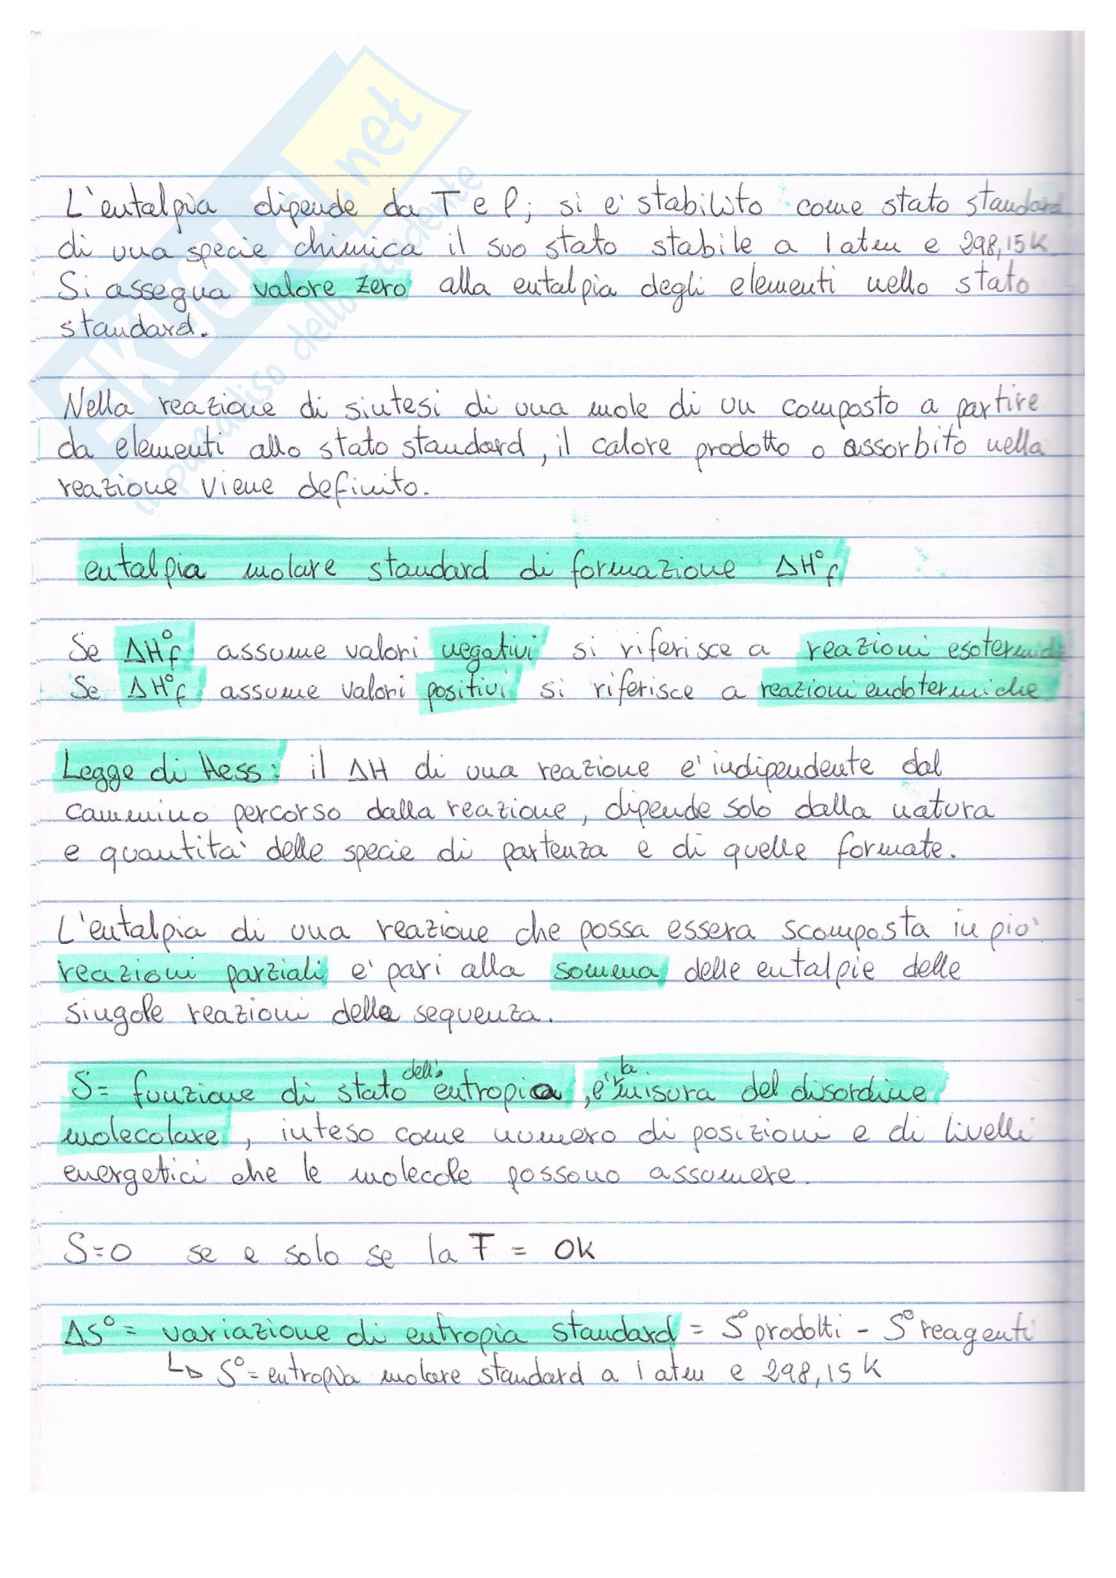 L'eutalpia dipende da T e P; si e' stabilito come stato standard
di una specie chimica il suo stato stabile a 1 atm e 298,15 K
Si assegna valore zero alla entalpia degli elementi nello stato
standard.
Nella reazione di sintesi di una mole di un composto a partire
da elementi allo stato standard, il calore prodotto o assorbito nella
reazione viene definito.
entalpia molare standard di formazione ΔH°f
Se ΔH°f assume valori negativi si riferisce a reazioni esotermich
Se ΔH°f assume valori positivi si riferisce a reazioni endotermiche
Legge di Hess: il ΔH di una reazione e' indipendente dal
cammino percorso dalla reazione, dipende solo dalla natura
e quantita' delle specie di partenza e di quelle formate.
L'entalpia di una reazione che possa essera scomposta in pio'
reazioni parziali e' pari alla somma delle entalpie delle
singole reazioni della sequenza.
S = funzione di stato dell'entropia, e' la misura del disordine
molecolare, inteso come numero di posizioni e di livelli
energetici che le molecole possono assumere.
S=0 se e solo se la T = 0K
ΔS° = variazione di entropia standard = S° prodotti - S° reagenti
↳ S° = entropia molare standard a 1 atm e 298,15 K
skuola.net
il paradiso dello studente